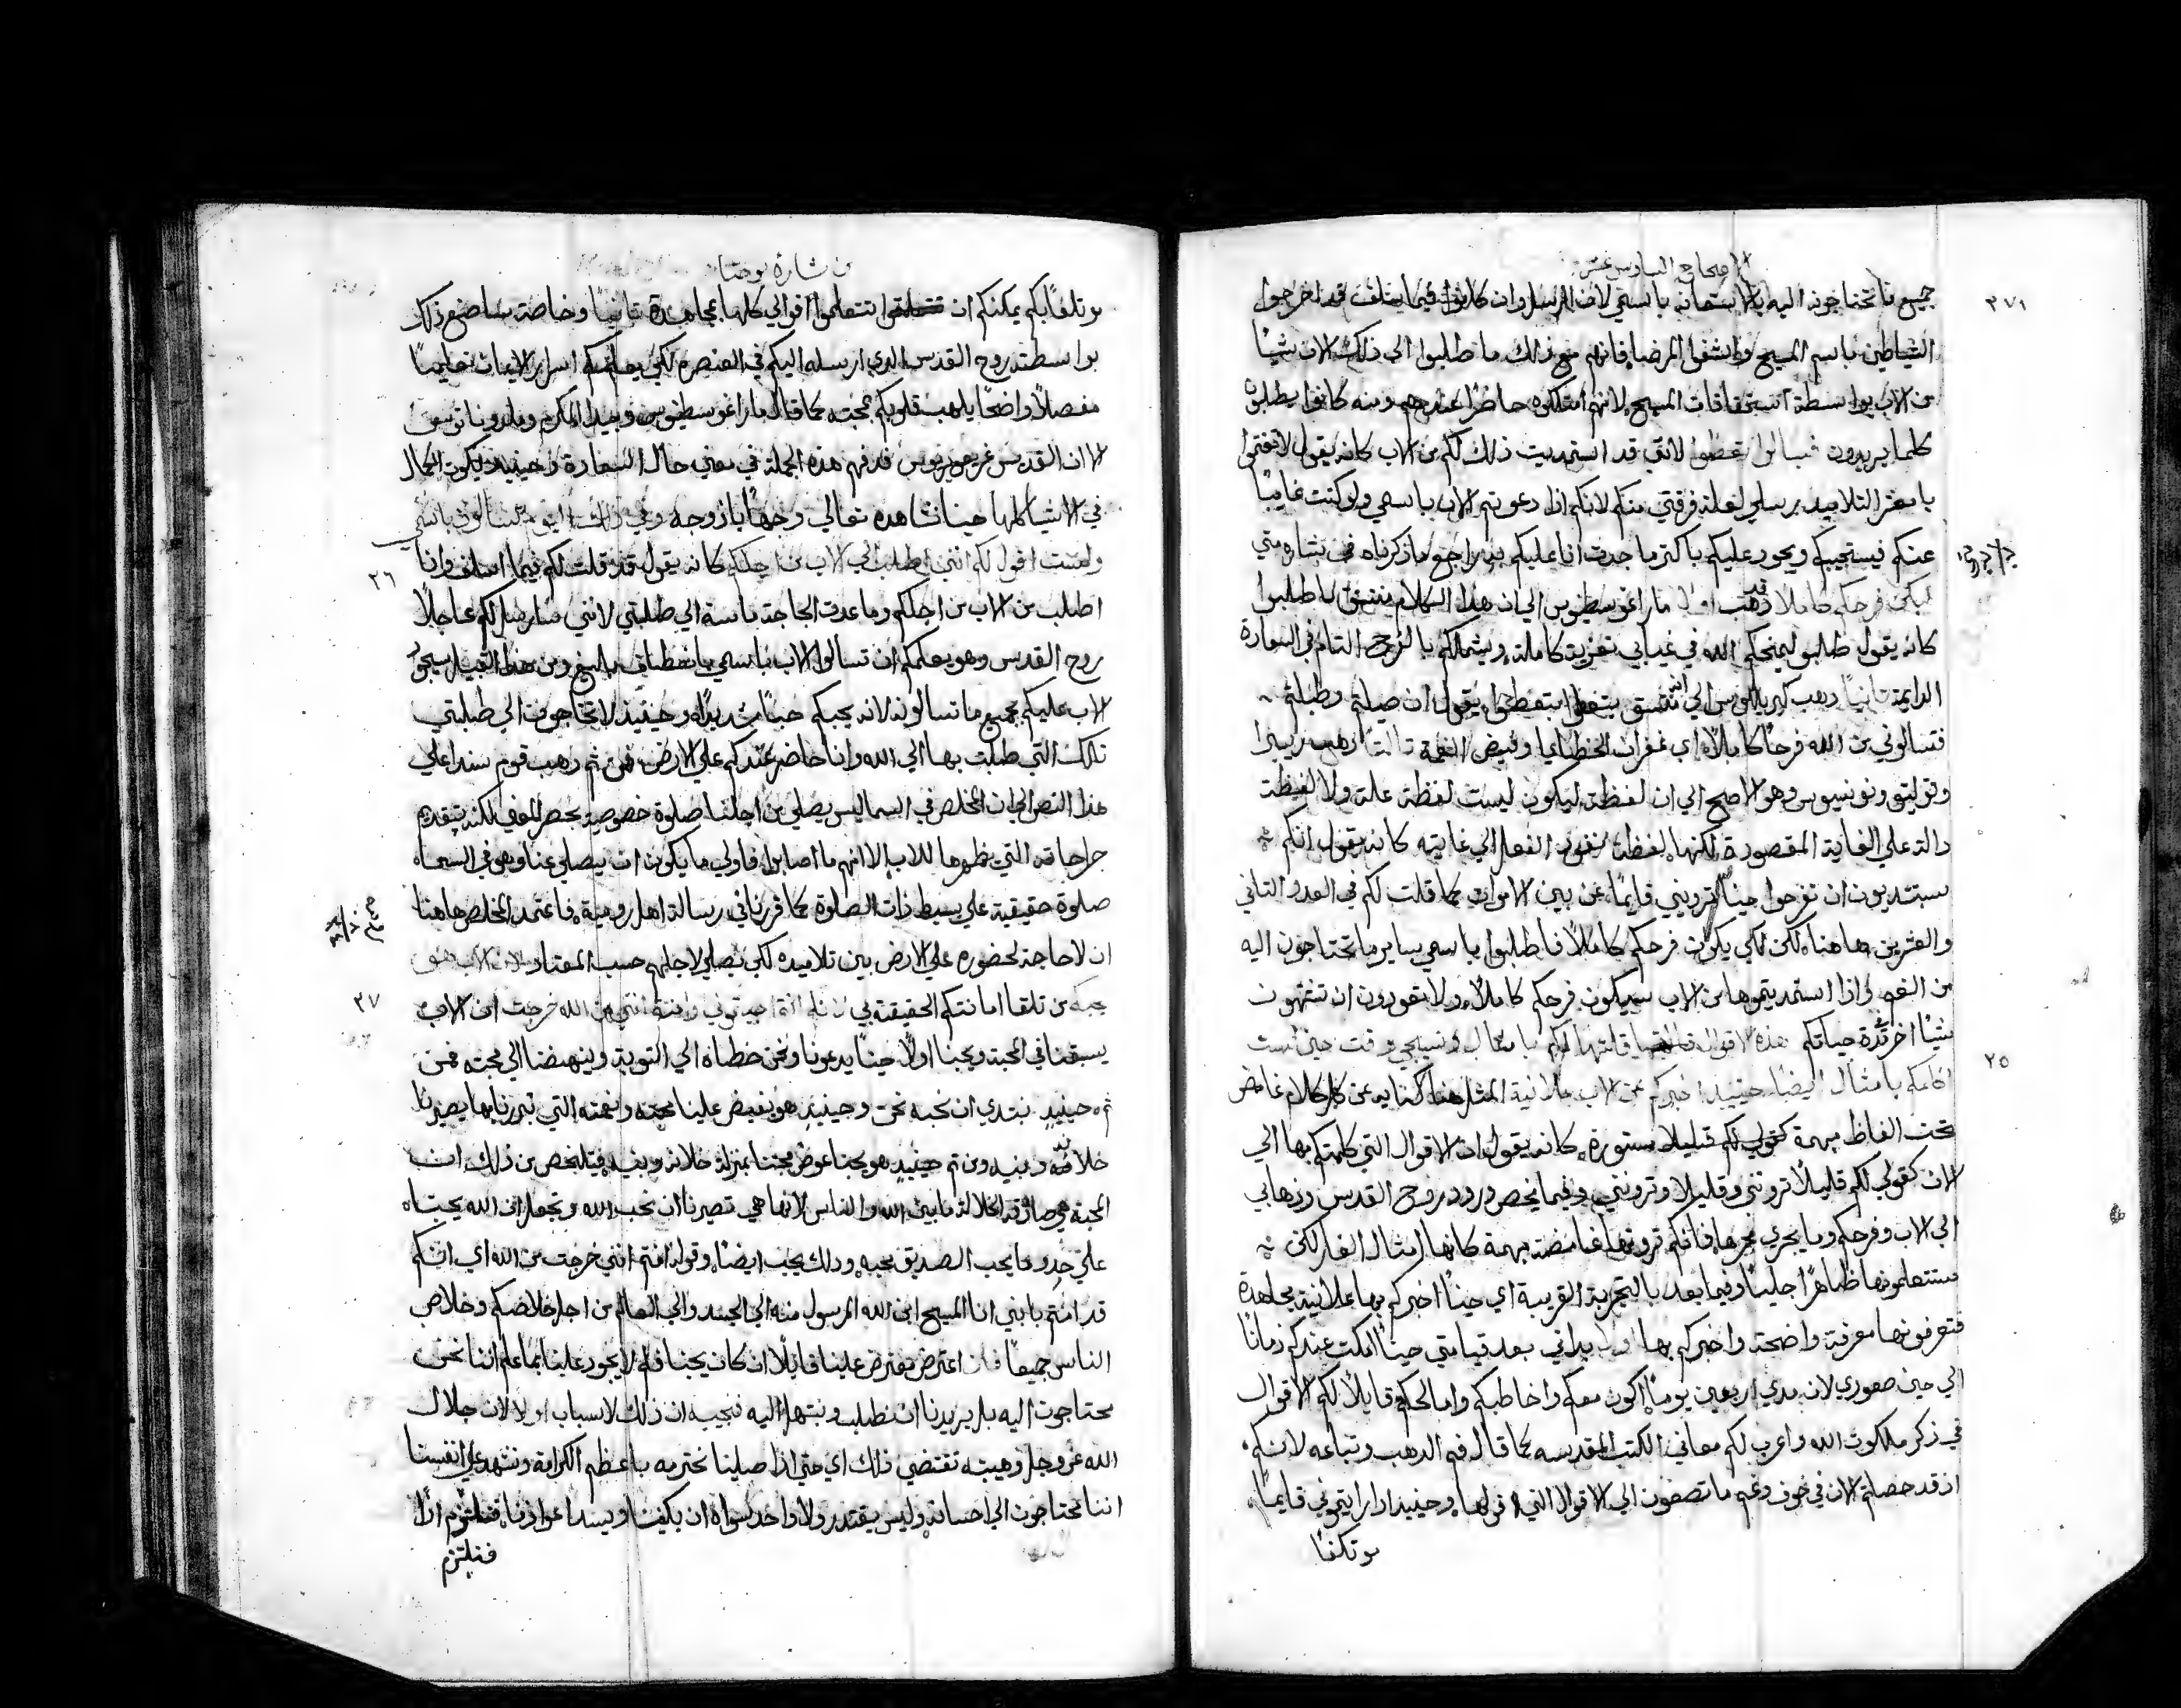 الاصحاح السادس عشر
٣٧١
جميع ما تحتاجون اليه بالاستعانه باسمي لان الرسل وان كانوا فيما سلف قد اخرجوا
الشياطين باسم المسيح واشفوا المرضا، فانهم مع ذلك ما طلبوا الي ذلك الان شيئًا
من الاب بواسطة استحقاقات المسيح، لانهم امتلكوه حاضرًا عندهم ومنه كانوا يطلبون
كلما يريدون فسالوا تعطوا لانني قد استمديت ذلك لكم من الاب كانه يقول لا تغتموا
يا معشر التلاميد برسلي لعلة فرقتي منكم لانكم اذا دعوتم الاب باسمي ولو كنت غايبًا
عنكم فيستجيبكم ويجود عليكم باكتر ما جدت انا عليكم به، راجع ما ذكرناه في بشاره متي
ليكن فرحكم كاملا دهب اولا ماراغوسطينوس الي ان هذا الكلام متسق لاطلبوا
كانه يقول طلبو ليمنحكم الله في غيابي تعزية كاملة، ويشملكم بالفرح التام في السعادة
الدايمة تانيًا دهب كيرياللوس الي انه متسق بتعطوا يقول ان صليتم وطلبتم
فتسالوني من الله فرحًا كاملًا، اي غفران الخطايا وفيض النعمة تالتًا دهب ريبيرا
وتوليتو ونونيسوس وهو الاصح الي ان لفظة ليكون ليست لفظة علة ولا لفظة
دالة علي الغاية المقصورة لكنها لفظة نفود الفعل الي غايته كانه يقول انكم
ستبتديون ان تفرحوا حينًا تروني قايمًا من بين الاموات كما قلت لكم في العدد التاني
والعشرين هاهنا، لكن لكي يكون فرحكم كاملًا فاطلبوا باسمي ساير ما تحتاجون اليه
من النعم واذا استمديتموها من الاب سيكون فرحكم كاملًا، ولا تعودون ان تشتهون
شيئًا اخر مدة حياتكم هذه الاقوال قلتها لكم بامثال وسيجي وقت حين لست
٢٥
اكلمكم بامثال ايضًا، حينيد اخبركم عن الاب علانية المثل هنا كنايه عن كل كلام غامض
تحت الفاظ مبهمة كقولي لكم قليلا مستورة، كانه يقول ان الاقوال التي كلمتكم بها الي
الان كقولي لكم قليلًا ترونني وقليلا وتروني، وفيما يخص ورود روح القدس ودهابي
الي الاب وفرحكم وما يجري مجراها فانكم ترونها غامضة مبهمة كانها امثال الغاز لكن
ستتعلمونها ظاهرًا جليًا وفيما بعد بالتجربة القريبة اي حينًا اخبركم بها علانية مجاهدة
فتعرفونها معرفة واضحة واخبركم بها اولا بداتي بعد قيامتي حينًا امكت عندكم زمانًا
الي حين صعودي لان مدي اربعين يومًا، اكون معكم واخاطبكم وامالحكم قايلًا لكم الاقوال
في ذكر ملكوت الله واعرب لكم معاني الكتب المقدسه كما قال فم الدهب وتباعه لانكم
اذ قد حصلتم الان في خوف وغم ما تصغون الي الاقوال التي اقولها، وحينيد اذا رايتموني قايمًا
موتكفا
من بشارة يوحنا
موتلفًا بكم يمكنكم ان تتعلموا اقوالي كلها بمجاهدة تانيًا وخاصة ساضع ذلك
بواسطة روح القدس الدي ارسله اليكم في العنصره لكي يعلمكم اسرار الايمان تعليمًا
مفصلًا واضحًا يلهب قلوبكم بمحبته كما قال ماراغوسطينوس وبيدا المكرم وملدوناتوس
الا ان القديس غريغوريوس قد فهم هذه الجملة في معني حال السعادة وحينيد يكون الكمال
في الاشيا كلها حينا نشاهده تعالي وجهًا بازوجه وفي ذلك اليوم تسالون باسمي
٢٦
ولست اقول لكم انني اطلب الي الاب من اجلكم كانه يقول قد قلت لكم فيما اسلف وانا
اطلب من الاب من اجلكم وما عدت الحاجة ماسة الي طلبتي لانني سارسل لكم عاجلًا
روح القدس وهو يعلمكم ان تسالوا الاب باسمي بانعطاف بليغ ومن هذا القبيل سيجود
الاب عليكم بجميع ما تسالونه لانه يحبكم حبًا شديدًا، وحينيد لا تحتاجون الي طلبتي
تلك التي طلبت بها الي الله وانا حاضر عندكم علي الارض، فمن تم دهب قوم سندا علي
هذا النص الي ان المخلص في السما ليس يصلي من اجلنا صلوة خصوصية بحصر المعني لكنه بتقديم
جراحاته التي يظهرها للاب، الا انهم ما اصابوا، فاولي ما يكون ان يصلي عنا وهو في السماء
صلوة حقيقية علي بسيط ذات الصلوة كما قررنا في رسالة اهل رومية، فاعتمد المخلص هاهنا
ان لا حاجة لحضوره علي الارض بين تلاميده لكي يصلي لاجلهم حسب المعتاد لان الاب هو
٢٧
يحبكم من تلقا امانتكم الحقيقية بي لانكم انتم احببتموني وامنتم انني من الله خرجت ان الاب
يسبقنا في المحبة ويحبنا اولًا حينًا يدعونا ونحن خطاه الي التوبة وينهضنا الي محبته فمن
تم حينيدٍ نبتدي ان نحبه نحن وحينيدِ هو يفيض علينا محبته ونعمته التي تبررنا بها يصيرنا
خلانه وبنيه ومن تم حينيدٍ هو يحبنا عوض محبتنا بمنزلة خلانه وبنيه، فيتلخص من ذلك ان
المحبة هي صادقة الخلالة ما بين الله والناس لانها هي تصيرنا ان نحب الله وتجعل ان الله يحبنا،
علي حدو ما يحب الصديق محبه، ودلك يحبه ايضًا، وقوله امنتم انني خرجت من الله اي انكم
قد امنتم بانني انا المسيح ابن الله المرسول منه الي الجسد والي العالم من اجل خلاصكم وخلاص
الناس جميعًا فان اعترض معترض علينا قايلًا ان كان يحبنا فلم لا يجود علينا بما علم اننا نحن
محتاجون اليه بل يريدنا ان نطلب ونبتهل اليه فنجيبه ان ذلك لاسباب اولا لان جلال
الله عز وجل وهيبته تقتضي ذلك اي حتي اذا صلينا نحترمه باعظم الكرامة ونشهد علي انفسنا
اننا محتاجون الي احسانه، وليس يقتدر ولا واحد سواه ان يكفينا ويسد اعوازنا، فنلتزم اذًا
فنلتزم